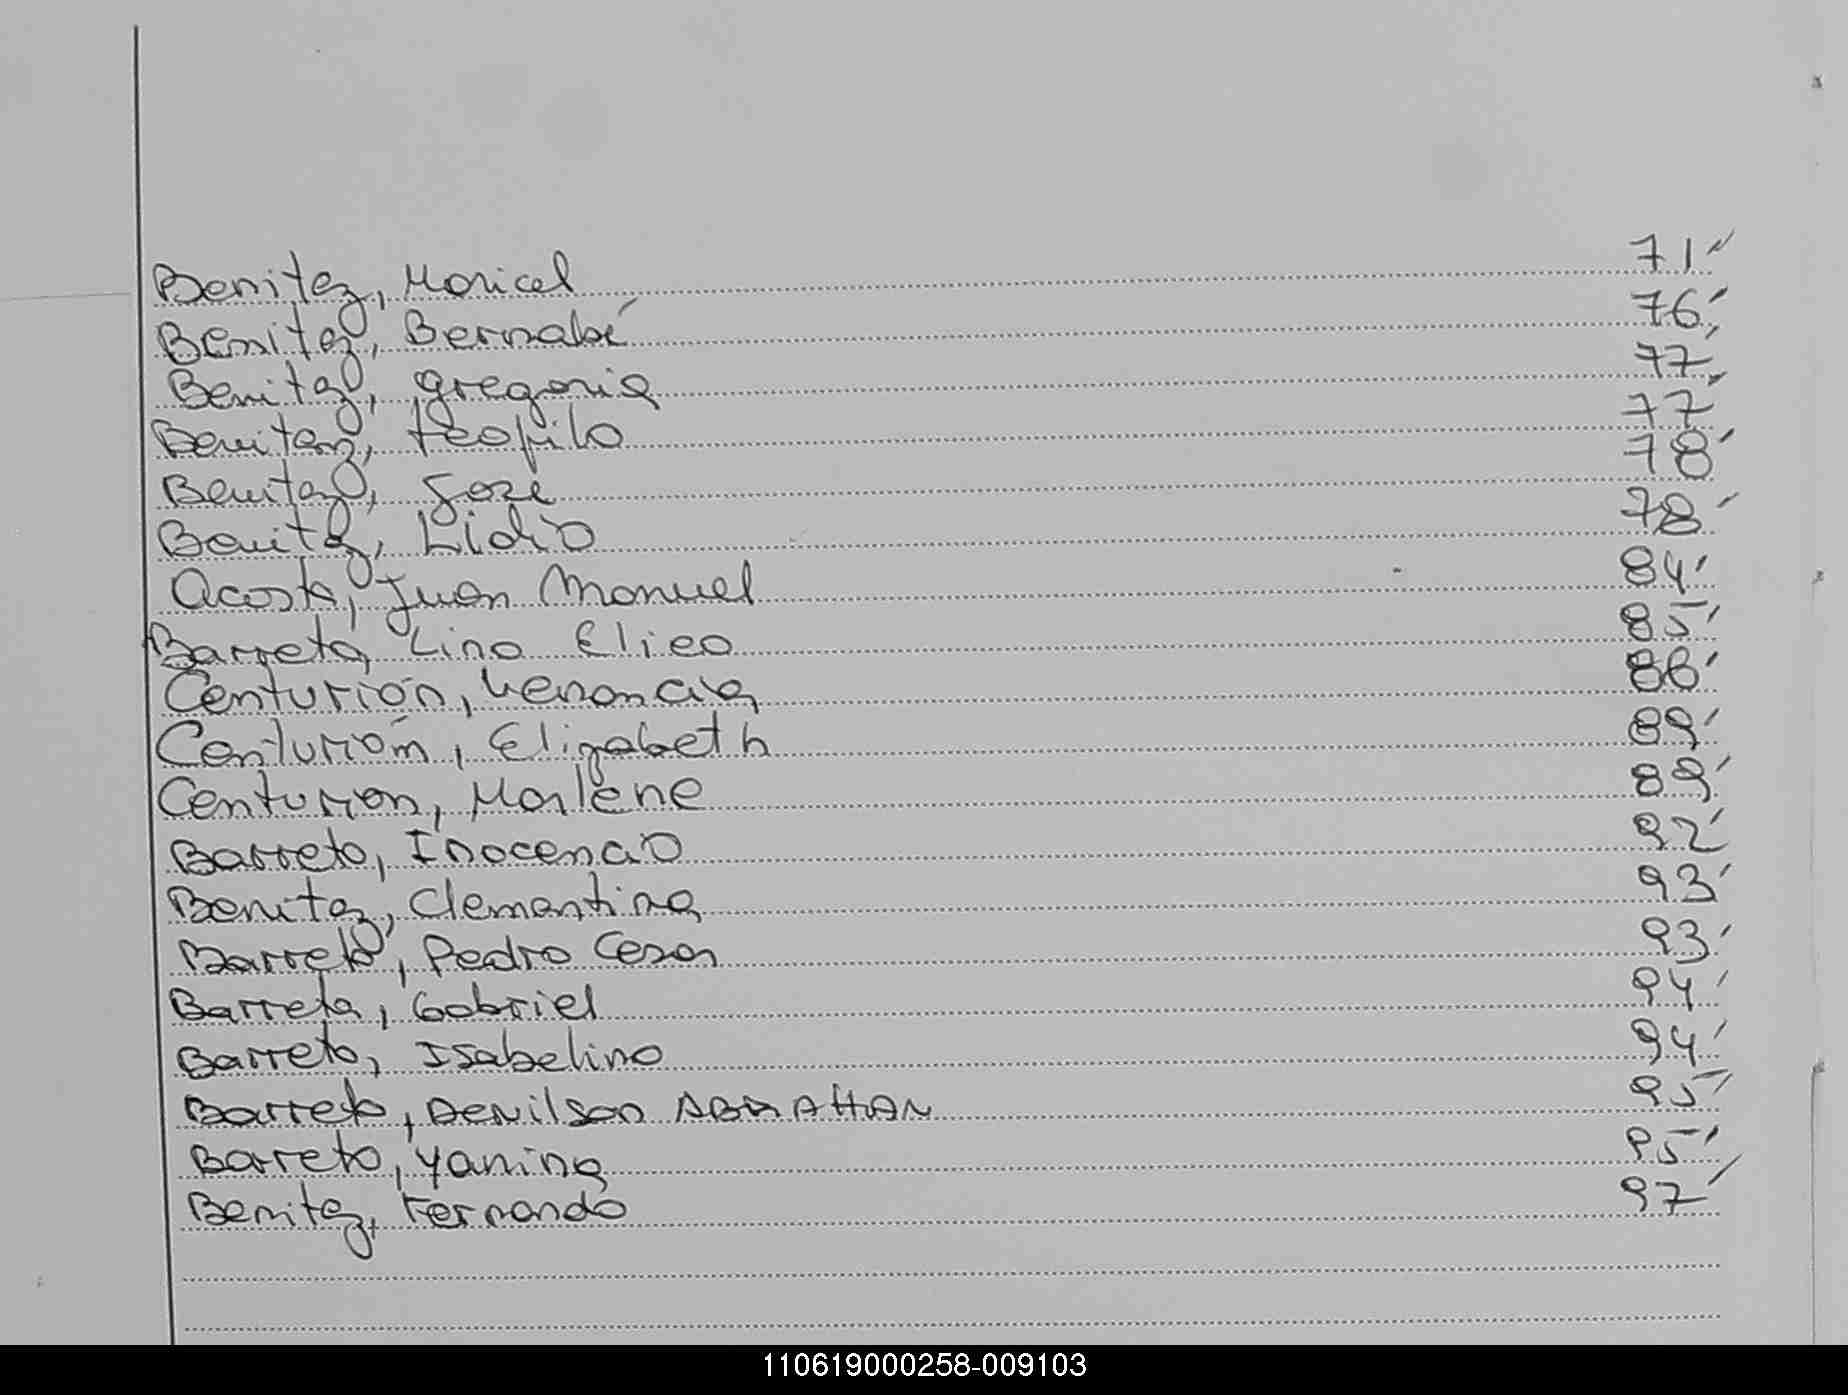 Benitez, Maricel 71
Benitez, Bernabé 76
Benitez, gregoria 77
Benitez, teofilo 77
Benitez, Jose 78
Benitez, Lidio 78
Acosta, Juan Manuel 84
Barreto, Lino Elieo 85
Centurión, Venancia 86
Centurión, Elizabeth 89
Centurion, Marlene 89
Barreto, Inocencio 92
Benitez, Clementina 93
Barreto, Pedro Cesar 93
Barreto, Gabriel 94
Barreto, Isabelino 94
Barreto, Denilson ABRAHAN 95
Barreto, Yanina 95
Benitez, Fernando 97
110619000258-009103